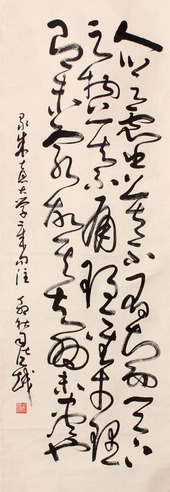 人心之靈莫不有知而天下
之物莫不有理惟於理
有未窮故其知有未盡也
录朱熹大学章句注